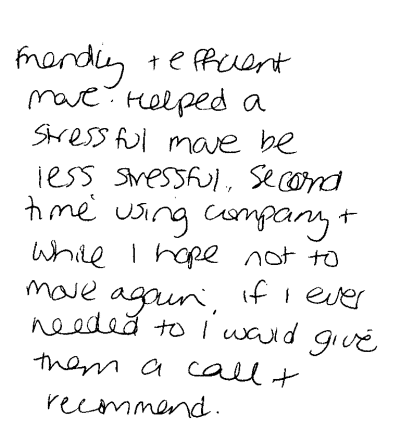 friendly + efficient
move. Helped a
stressful move be
less stressful. Second
time using company +
while I hope not to
move again, if I ever
needed to I would give
them a call +
recommend.